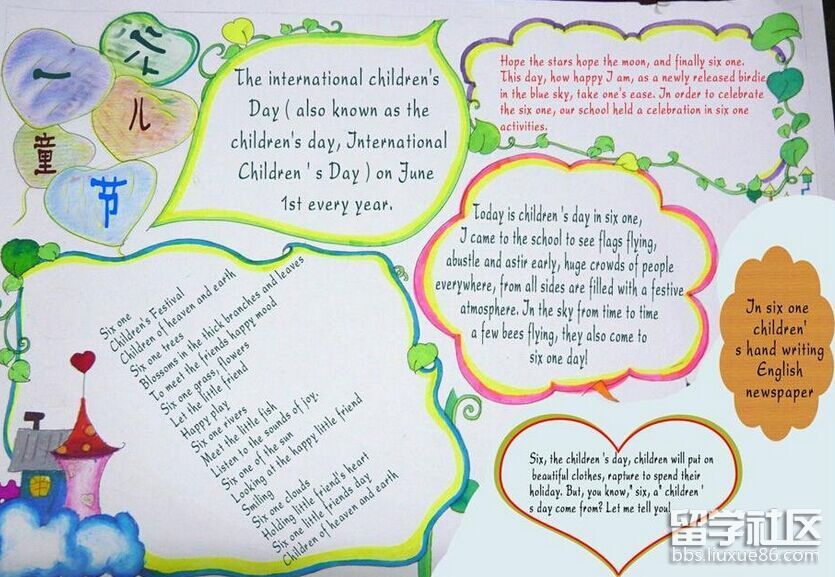 六
一
儿
童
节
The international children's
Day ( also known as the
children's day, International
Children ' s Day ) on June
1st every year.
Hope the stars hope the moon, and finally six one.
This day, how happy I am, as a newly released birdie,
in the blue sky, take one's ease. In order to celebrate
the six one, our school held a celebration in six one
activities.
Today is children 's day in six one,
I came to the school to see flags flying,
abustle and astir early, huge crowds of people
everywhere, from all sides are filled with a festive
atmosphere. In the sky from time to time
a few bees flying, they also come to
six one day!
Six one
Children's Festival
Children of heaven and earth
Six one trees
Blossoms in the thick branches and leaves
To meet the friends happy mood
Six one grass, flowers
Let the little friend
Happy play
Six one rivers
Meet the little fish
Listen to the sounds of joy.
Six one of the sun
Looking at the happy little friend
Smiling
Six one clouds
Holding little friend's heart
Six one little friends day
Children of heaven and earth
In six one
children'
s hand writing
English
newspaper
Six, the children 's day, children will put on
beautiful clothes, rapture to spend their
holiday. But, you know," six, a" children '
s day come from? Let me tell you!
留学社区
bbs.liuxue86.com